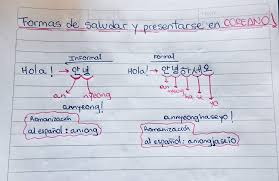 Formas de saludar y presentarse en COREANO
Informal
Formal
Hola! → 안녕
Hola! → 안녕하세요
an nyeong
an nyeong ha se yo
annyeong!
annyeonghaseyo!
Romanización
al español: aniong
Romanización
al español: aniongjaseio